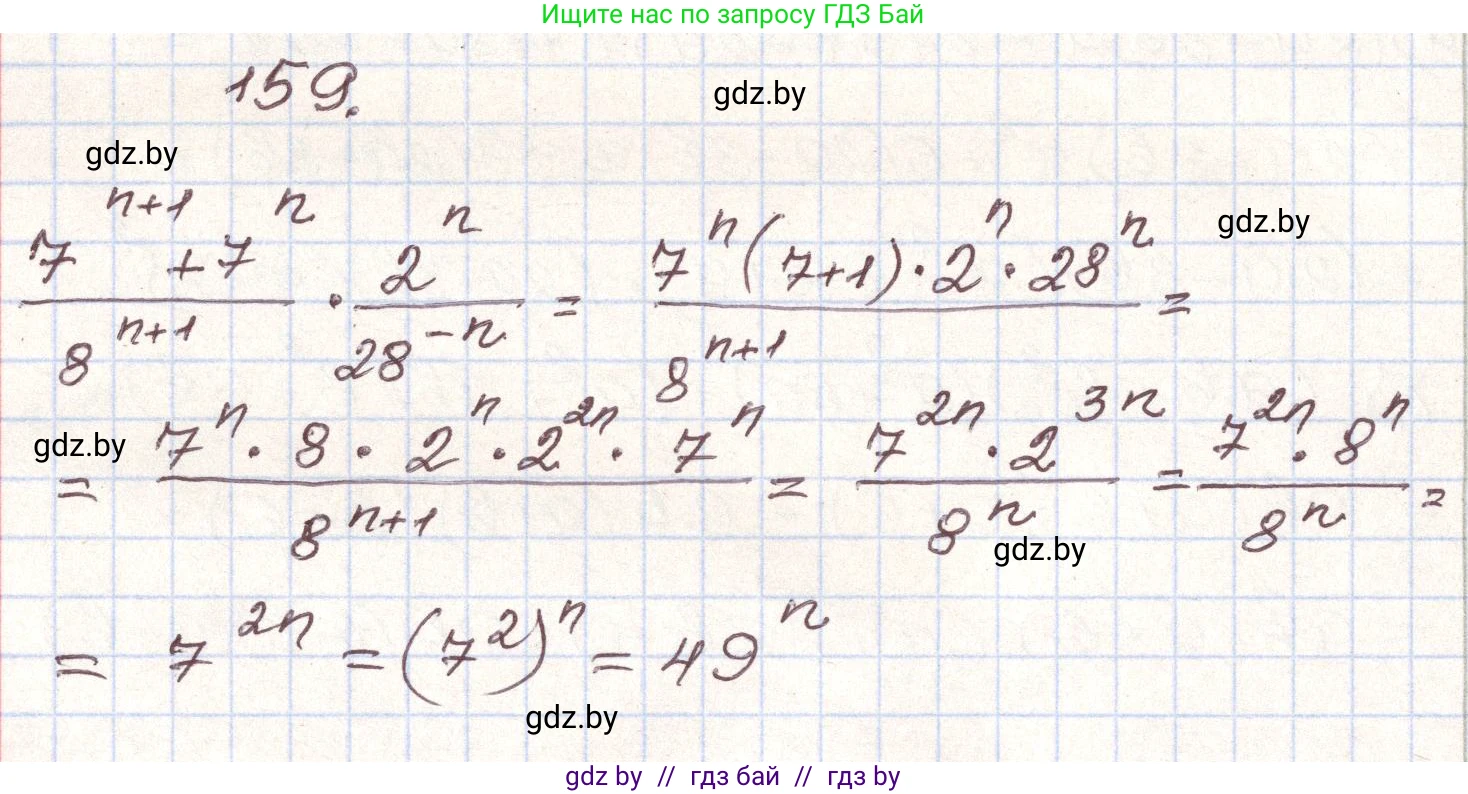 Ищите нас по запросу ГДЗ Бай
159.
gdz.by
gdz.by
gdz.by
(7^(n+1) + 7^n)/8^(n+1) · 2^n/28^(-n) = (7^n(7+1) · 2^n · 28^n)/8^(n+1) =
gdz.by
= (7^n · 8 · 2^n · 2^(2n) · 7^n)/8^(n+1) = (7^(2n) · 2^(3n))/8^n = (7^(2n) · 8^n)/8^n =
gdz.by
= 7^(2n) = (7^2)^n = 49^n
gdz.by
gdz by // гдз бай // гдз by